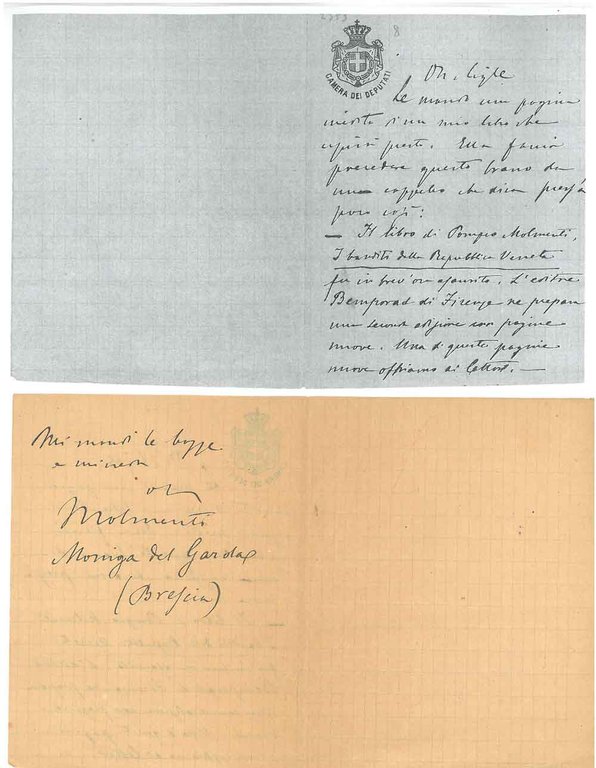 2353 8
CAMERA DEI DEPUTATI
On.
Le mando una pagina
inedita di un mio libro che
uscirà presto. Ella faccia
precedere questo brano da
un cappello che dica press'a
poco così:
— Il libro di Pompeo Molmenti,
I banditi della Repubblica Veneta
fu in brev'ora esaurito. L'editore
Bemporad di Firenze ne prepara
una seconda edizione con pagine
nuove. Una di queste pagine
nuove offriamo ai lettori. —
Mi mandi le bozze
e mi creda
Molmenti
Moniga del Garda
(Brescia)